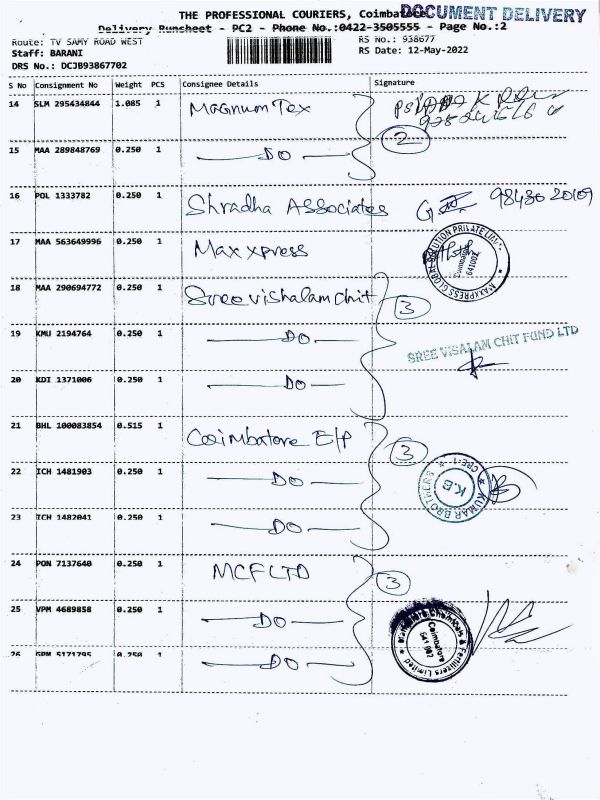 THE PROFESSIONAL COURIERS, Coimbatore
DOCUMENT DELIVERY
Delivery Runsheet - PC2 - Phone No.:0422-3505555 - Page No.:2
Route: TV SAMY ROAD WEST
RS No.: 938677
Staff: BARANI
RS Date: 12-May-2022
DRS No.: DCJB93867702
S No Consignment No Weight PCS Consignee Details Signature
14 SLM 295434844 1.085 1 Magnum Tex
15 MAA 289848769 0.250 1 DO 2
16 POL 1333782 0.250 1 Shradha Associates 98430 20109
17 MAA 563649996 0.250 1 Max xpress
MAXXPRESS GLOBAL SOLUTION PRIVATE LIMITED
Coimbatore
641002
18 MAA 290694772 0.250 1 Sree vishalam chit 3
19 KMU 2194764 0.250 1 DO
SREE VISALAM CHIT FUND LTD
20 KDI 1371006 0.250 1 DO
21 BHL 100083854 0.515 1 Coimbatore E/P 3
22 ICH 1481903 0.250 1 DO
KUMAR BROTHERS
CBE-1
K.B
23 ICH 1482041 0.250 1 DO
24 PON 7137640 0.250 1 MCF LTD 3
25 VPM 4689858 0.250 1 DO
Mangalore Chemicals & Fertilizers Limited
Coimbatore
641 002
26 GPM 5171795 0.250 1 DO